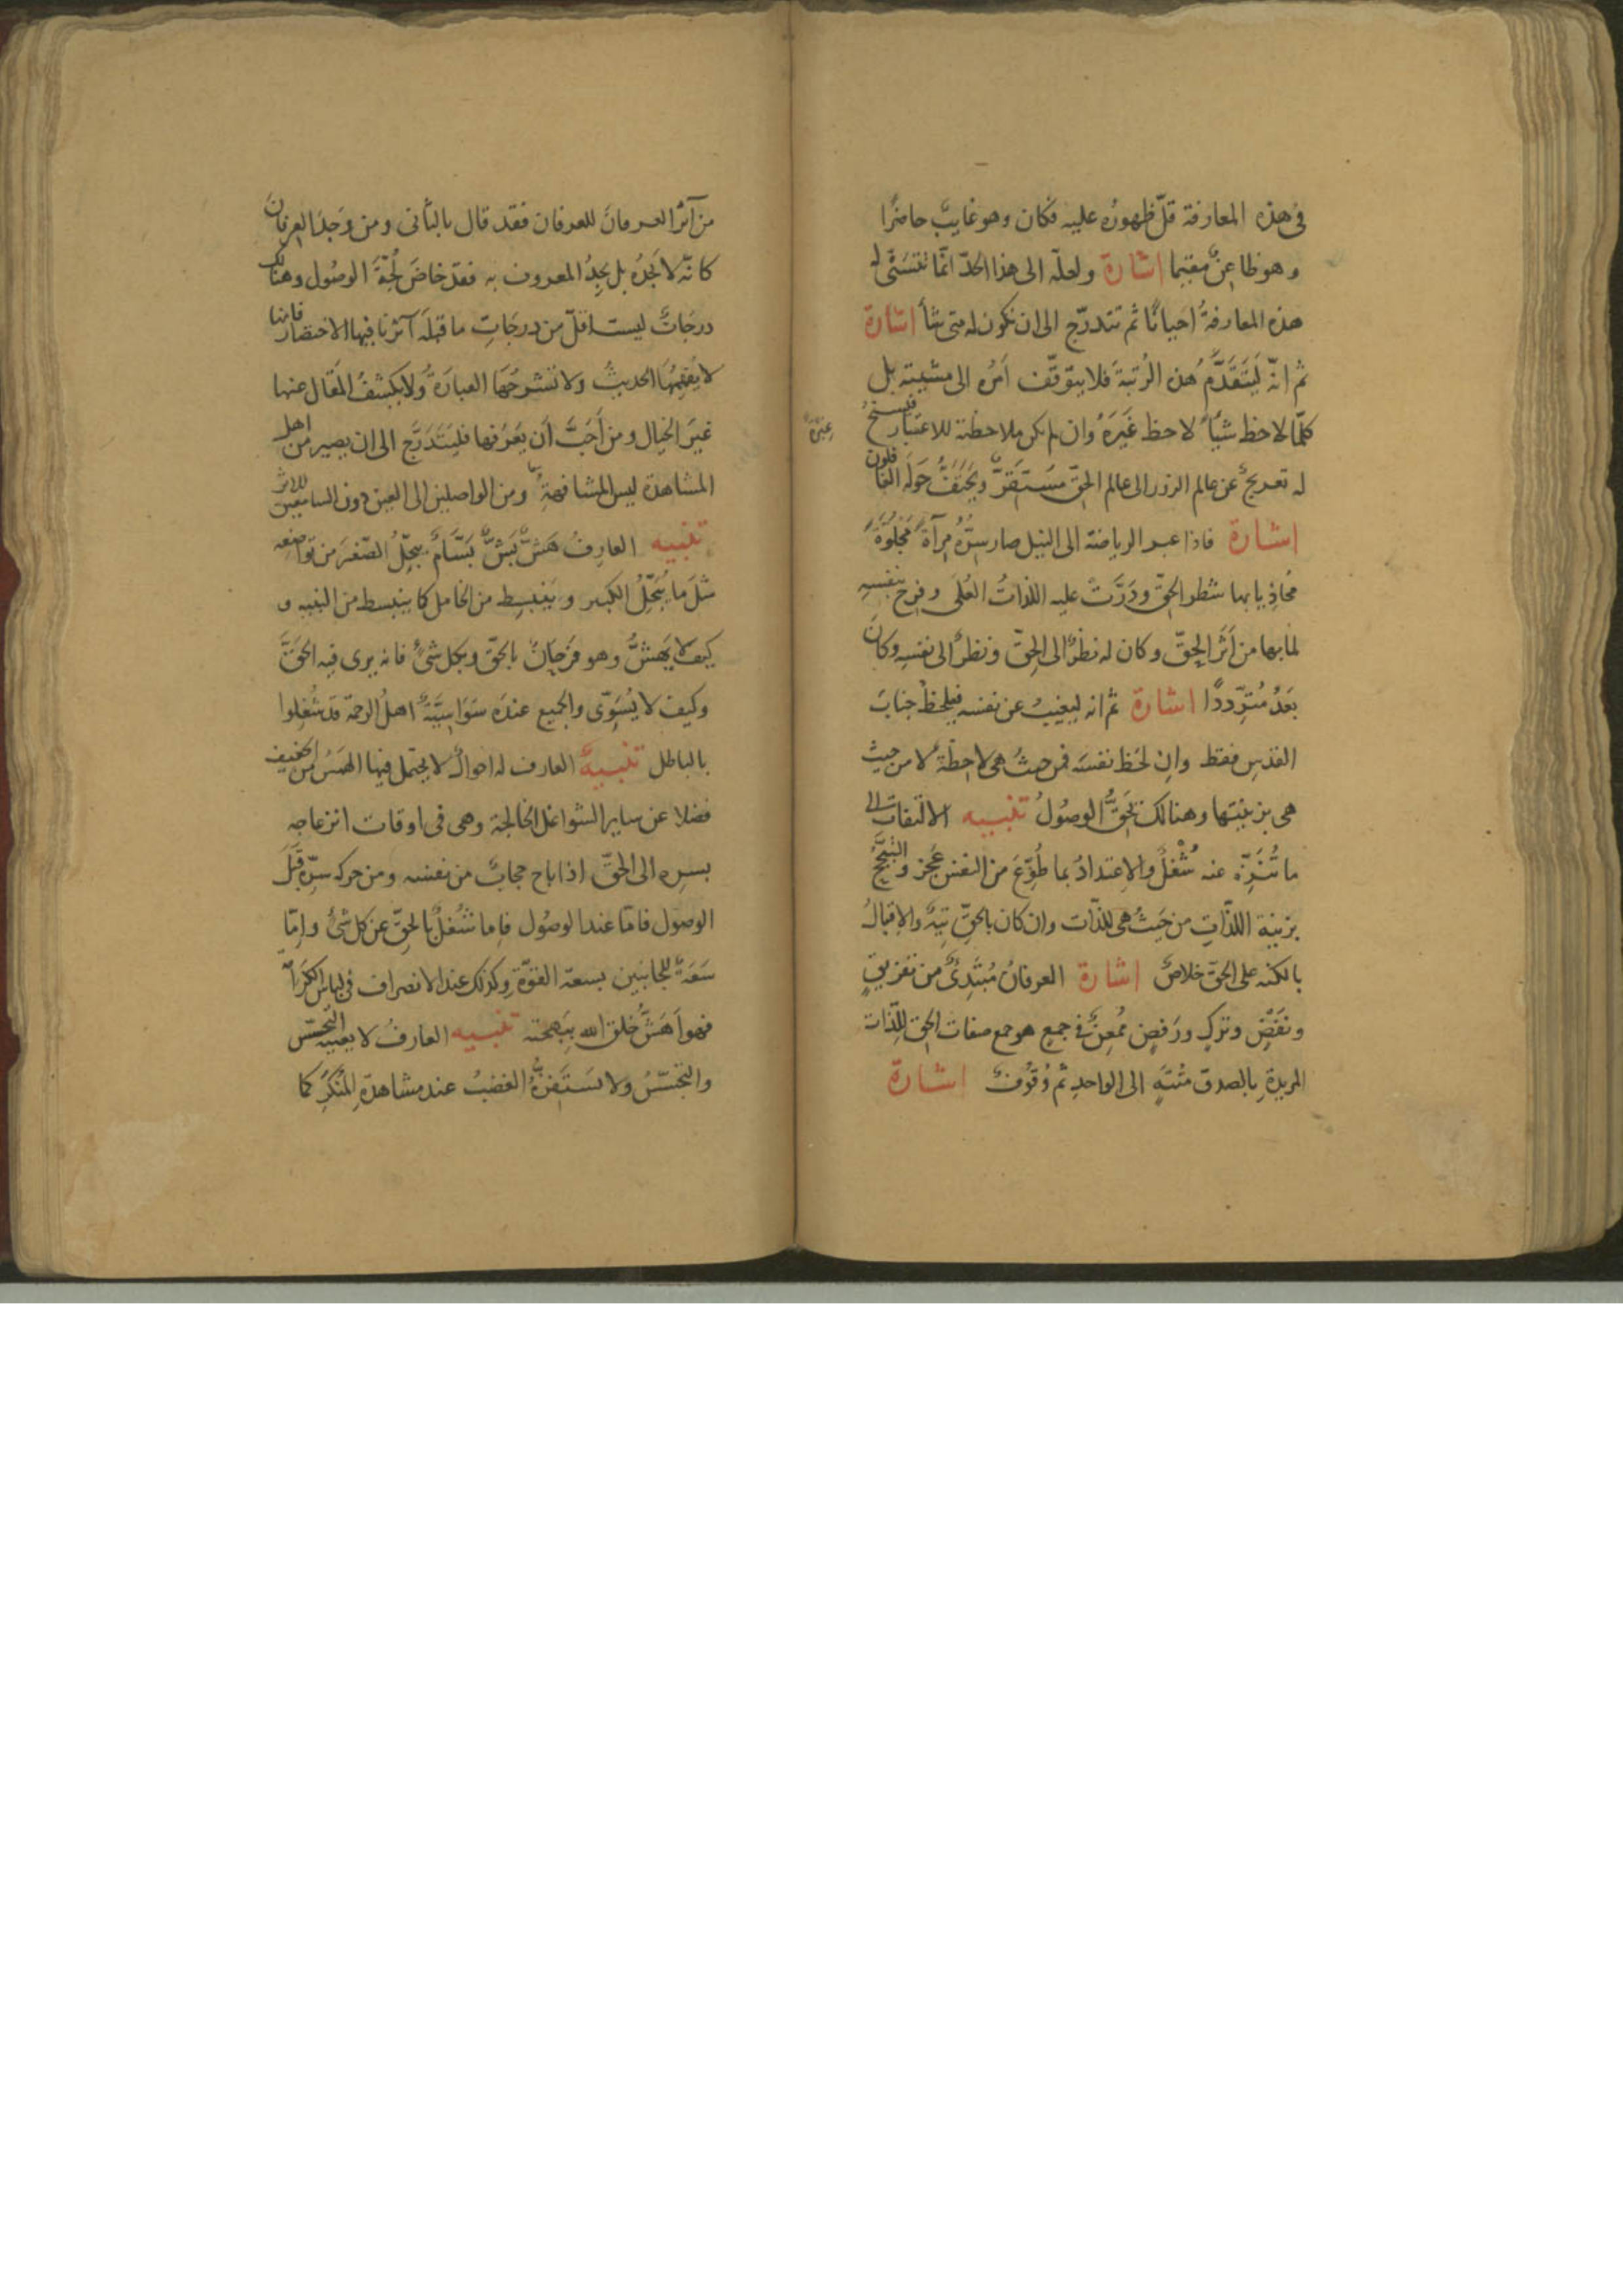 فى هذه المعارفة قلّ ظهوره عليه فكان وهو غايبٌ حاضرًا
وهو ظاعنٌ مقيما اشارة ولعلّه الى هذا الحدّ انّما تتسَنّى له
هذه المعارفةُ احيانًا ثم تتدرّج الى ان تكون له متى شأ اشارة
ثم انّه ليَتَقدَّمُ هذه الرُتبة فلا يتوقّف امرُه الى مشيته بل
كلّما لاحظ شيأً لاحظ غَيَرهُ وان لم يكن ملاحظته للاعتبار فيسنحُ
غيره
له تعريجٌ عن عالم الزور الى عالم الحقّ مستَقَرٌّ ويَحتَفُّ حَولَه الغافلون
اشارة فاذا عبر الرياضة الى النيل صار سِرُّه مِرآةً مَجلُوَّةً
مُحاذِيا بها شطر الحقّ ودَرَّت عليه اللذاتُ العُلَى وفرِح بنفسِهِ
لما بها من اَثَر الحقّ وكان له نظرٌ الى الحقّ ونظرٌ الى نفسِه وكانَ
بَعدُ مُترِّددًا اشارة ثم انه ليغيبُ عن نفسه فيلحظُ جنابَ
القدسِ فقط وان لحَظ نفسَه فمن حيثُ هى لاحِظةٌ لا من حيث
هى بزينتها وهنالك يَحِقُّ الوصُولُ تنبيه الالتفات الى
ما تُنزِّه عنه شُغْلٌ والاِعتدادُ بما طُوِّعَ من النفس عَجز والتبجّحُ
بزينة اللذّاتِ من حَيثُ هى للذّات وان كان بالحقّ تِيهٌ والاِقبالُ
بالكنه على الحقّ خلاصٌ اشارة العرفانُ مُبتَدِئٌ من تفريقٍ
ونفَضٍ وتركٍ ورَفضٍ مُمعِنٌ فى جمعٍ هو جمع صفات الحق للذّات
المريدةِ بالصدق مُنتهٍ الى الواحدِ ثم وُقُوفٌ اشارة
من آثر العرفانَ للعرفان فقد قال بالثانى ومن وَجدَ العِرفانَ
كانّه لا يَجدُه بل يَجِدُ المعروف به فقد خاضَ لُجّةَ الوصُول وهنالك
درجَاتٌ ليست اقلّ من درجَاتِ ما قبلَه آثرنا فيها الاختصار فانها
لا يُفهِمُهَا الحديثُ ولا تشرحُهَا العبارَةُ ولا يكشفُ المقال عنها
غيَر الخيال ومن اَحَبَّ اَن يتعرَفَها فليتَدَرَّج الى ان يصير من اهل
المشاهدة ليس المشافهة ومن الواصلين الى العين دون السامعين للاثر
تنبيه العارفُ هَشٌّ بَشٌّ بَسَّامٌ يبجّلُ الصّغيَر من تواضعه
مثلَ ما يُبَجّلُ الكبير وينبسِط من الخامل كما ينبسط من النبيه و
كيف لا يَهَشُّ وهو فَرحَانٌ بالحقّ وبكل شىءٍ فانه يرى فيه الحَقَّ
وكيف لا يُسَوّى والجميع عندَه سَوَاسِيَّةٌ اهلُ الرحمة قد شُغِلوا
بالباطل تنبيهٌ العارف له احوالٌ لا يحتمل فيها الهَمسُ من الحفيف
فضلا عن ساير الشواغل الخالجة وهى فى اوقات انزعاجه
بسره الى الحقّ اذا باح حجابٌ من نفسه ومن حركه سرّه قَبْلَ
الوصول فامّا عند الوصُول فاِما شُغلٌ بالحقّ عن كل شىء واِمّا
سَعَةٌ للجانبين بسعة القوّة وكذلك عند الانصراف فى لباس الكَرَامَة
فهو اَهَشُّ خلق الله بِبَهجته تنبيه العارفُ لا يعنيه التجسّس
والتحسّسُ ولا يستَفزُّه الغضبُ عند مشاهدةِ المُنكَرِ كما